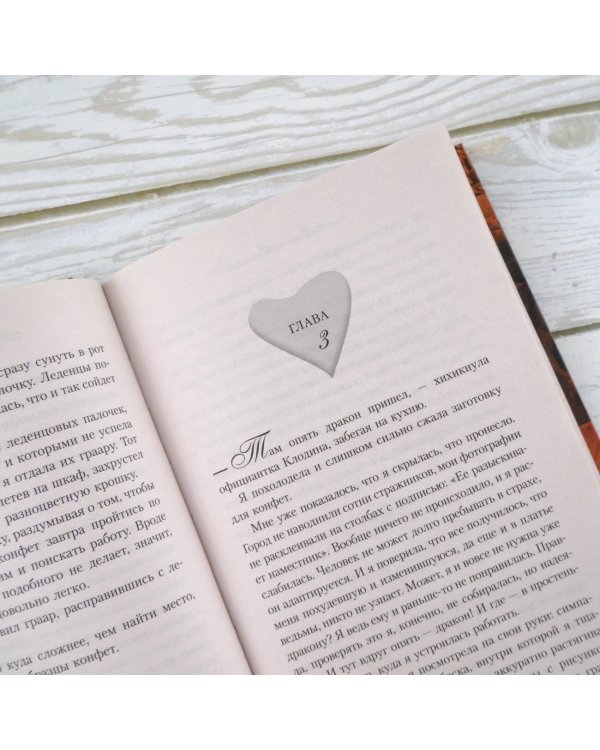 сразу сунуть в рот
лочку. Леденцы по-
лась, что и так сойдет
леденцовых палочек,
и которыми не успела
я отдала их граару. Тот
детев на шкаф, захрустел
разноцветную крошку.
раздумывая о том, чтобы
конфет завтра пройтись по
им и поискать работу. Вроде
подобного не делает, значит,
довольно легко.
вил граар, расправившись с ле-
куда сложнее, чем найти место,
образцы конфет.
ГЛАВА
3
– Там опять дракон пришел, – хихикнула
официантка Клодина, забегая на кухню.
Я похолодела и слишком сильно сжала заготовку
для конфет.
Мне уже показалось, что я скрылась, что пронесло.
Город не наводнили сотни стражников, мои фотографии
не расклеивали на столбах с подписью: «Ее разыскива-
ет наместник». Вообще ничего не происходило, и я рас-
слабилась. Человек не может долго пребывать в страхе,
он адаптируется. И я поверила, что все получилось, что
меня похудевшую и изменившуюся, да еще и в платье
ведьмы, никто не узнает. Может, я и вовсе не нужна уже
дракону? Я ведь ему и раньше-то не понравилась. Прав-
да, проверить это я, конечно, не собиралась, но надея-
И тут вдруг опять – дракон! И где – в простень-
куда я устроилась работать.
посмотрела на свои руки: симпа-
внутри которой я тща-
аккуратно растягива
с рисунко